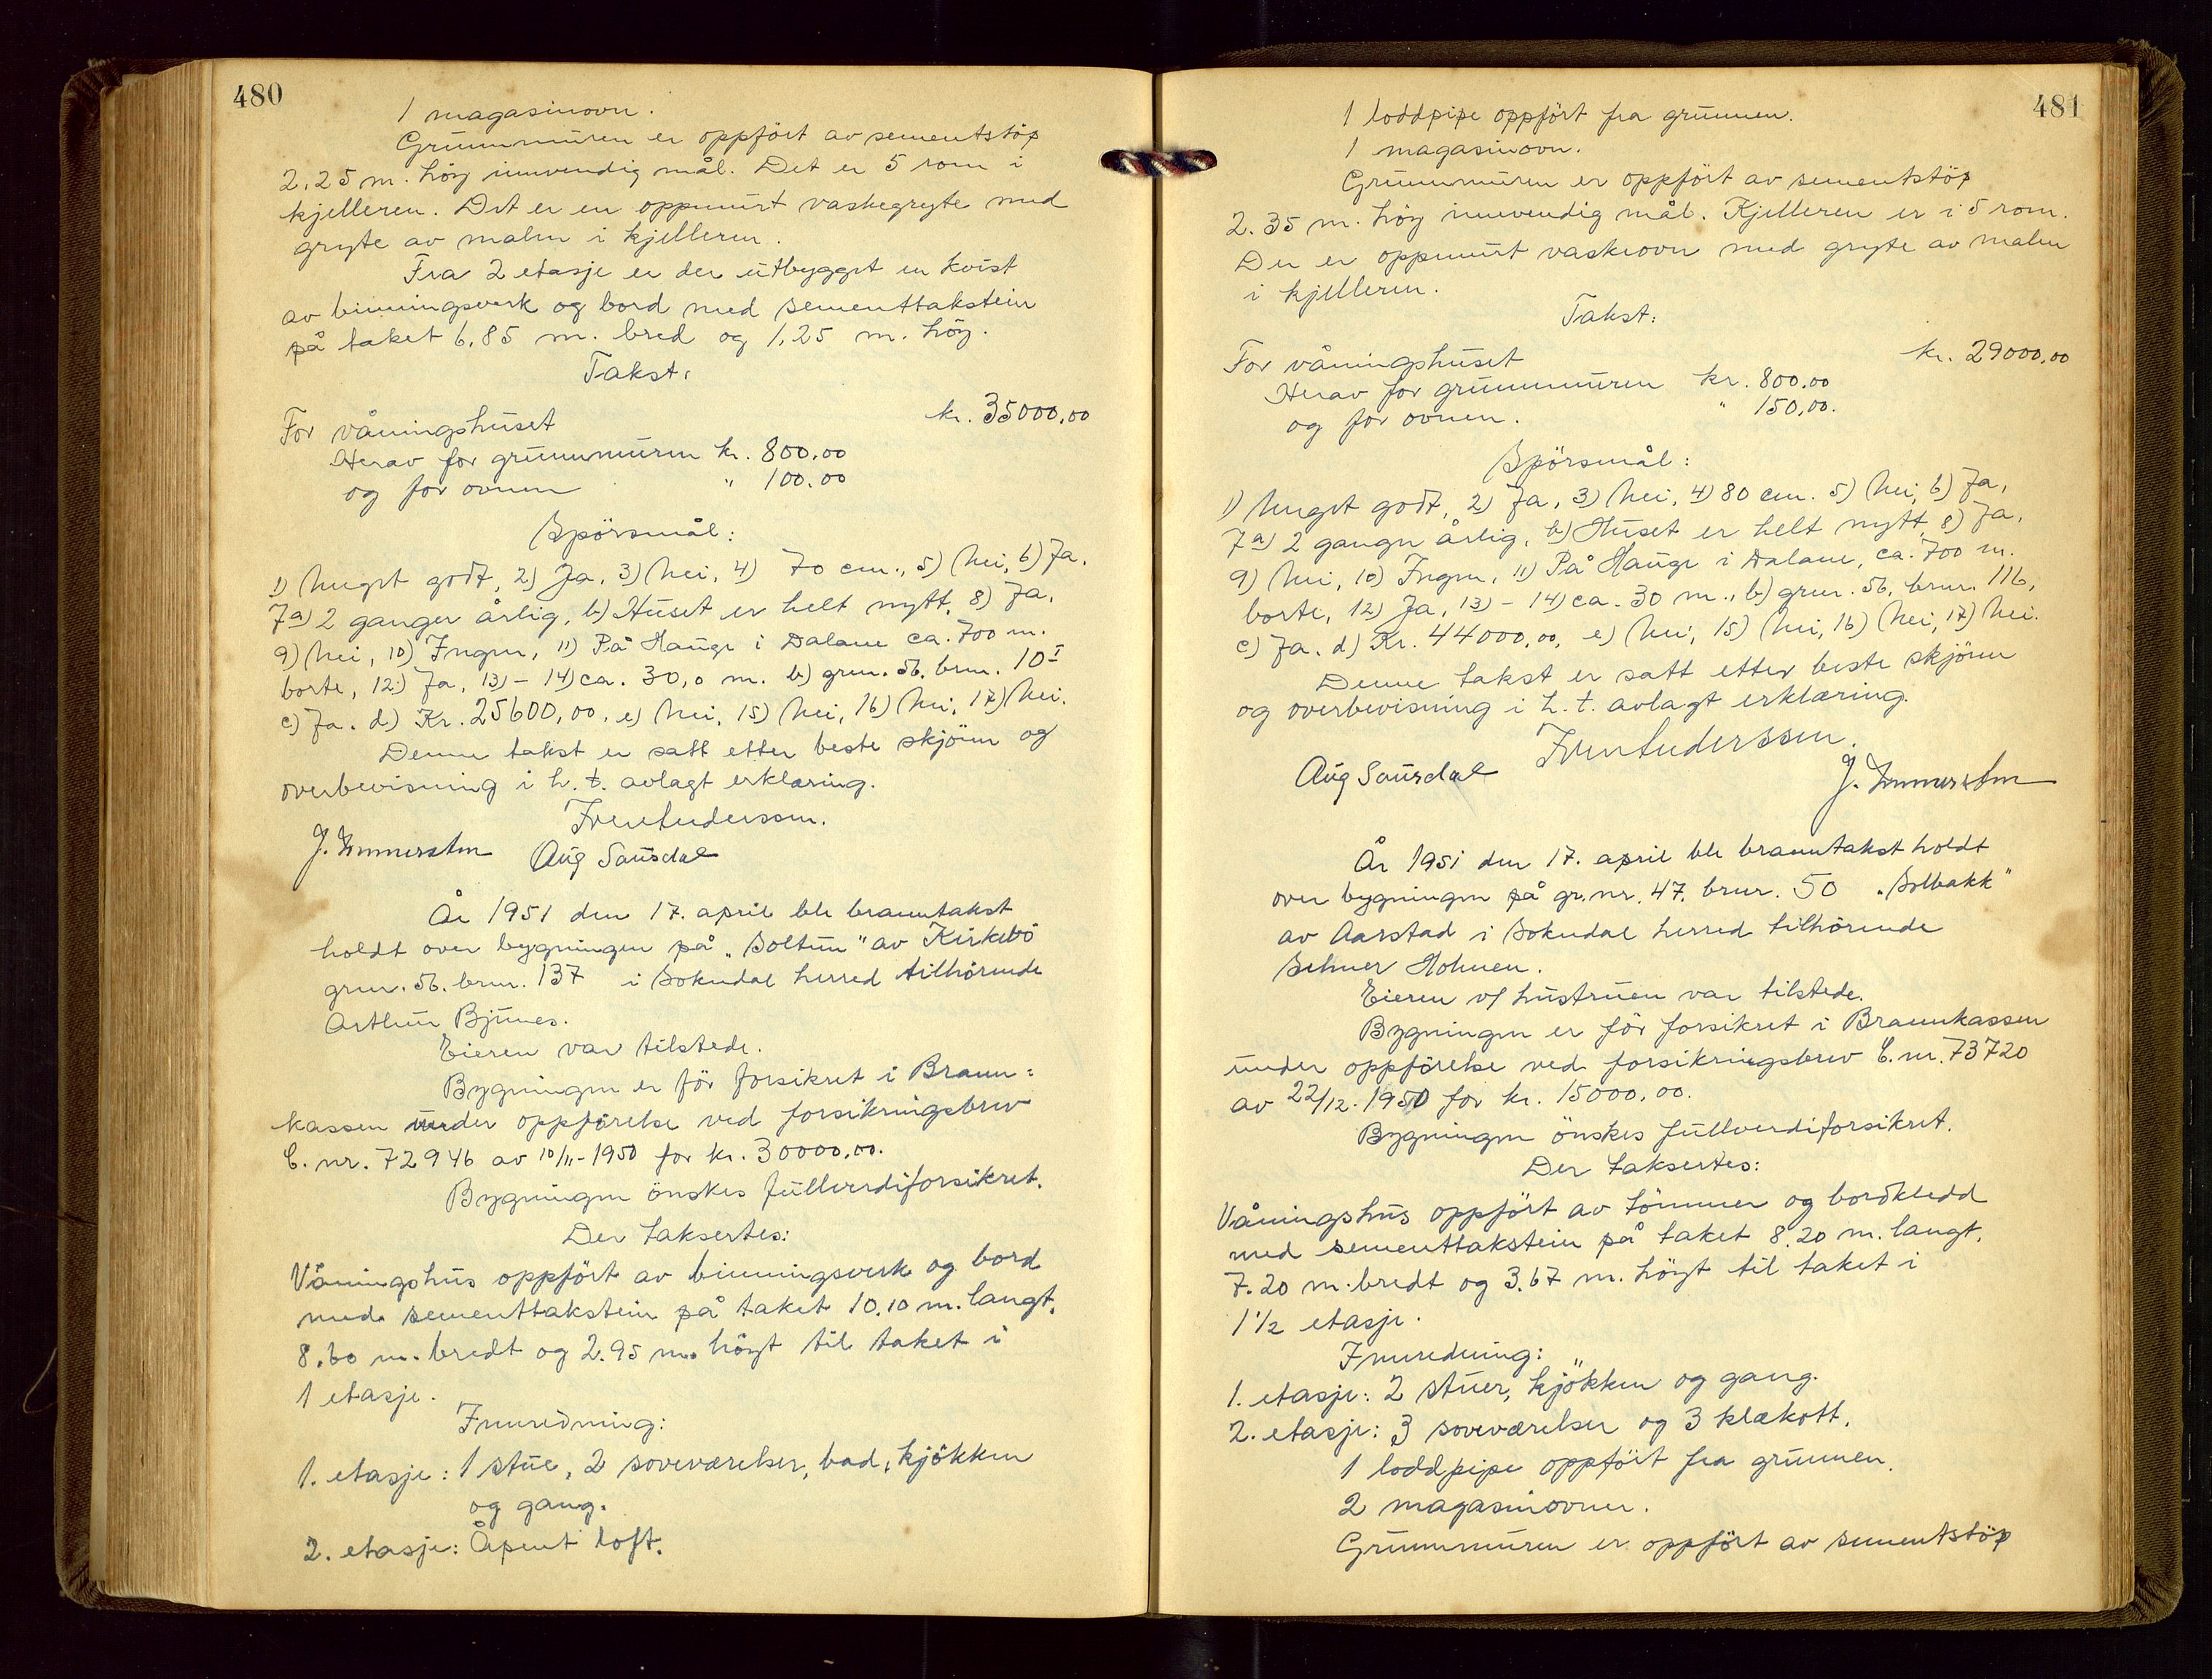 480
1 magasinovn.
Grunnmuren er oppført av sementstöp
2.25 m. höy innvendig mål. Det er 5 rom i
kjelleren. Det er en oppmurt vaskegryte med
gryte av malm i kjelleren.
Fra 2 etasje er der utbygget en kvist
av binningsverk og bord med sementtakstein
på taket 6,85 m. bred og 1,25 m. höy.
Takst:
For våningshuset kr. 35000,00
Herav for grunnmuren kr. 800,00
og for ovnen " 100,00
Spörsmål:
1) Meget godt, 2) Ja, 3) Nei, 4) 70 cm., 5) Nei, 6) Ja,
7a) 2 ganger årlig, b) Huset er helt nytt, 8) Ja,
9) Nei, 10) Ingen, 11) På Hauge i Dalane ca. 700 m.
borte, 12) Ja, 13) - 14) ca. 30,0 m. b) grnr. 56, brnr. 10I
c) Ja. d) Kr. 25600,00, e) Nei, 15) Nei, 16) Nei, 17) Nei.
Denne takst er satt etter beste skjönn og
overbevisning i h. t. avlagt erklæring.
J. Immerstein Aug Saursdal
År 1951 den 17. april ble branntakst
holdt over bygningen på „Soltun" av Kirkebö
grnr. 56. brnr. 137 i Sokndal herred tilhörende
Arthur Bjunes.
Eieren var tilstede.
Bygningen er för forsikret i Brann=
kassen under oppförelse ved forsikringsbrev
C. nr. 72946 av 10/11-1950 for kr. 30000,00.
Bygningen önskes fullverdiforsikret.
Der taksertes:
Våningshus oppfört av binningsverk og bord
med sementtakstein på taket 10.10 m. langt,
8.60 m. bredt og 2.95 m. höyt til taket i
1 etasje.
Innredning:
1. etasje: 1 stue, 2 soveværelser, bad, kjökken
og gang.
2. etasje: Åpent loft.
481
1 loddpipe oppfört fra grunnen.
1 magasinovn.
Grunnmuren er oppfört av sementstöp
2.35 m. höy innvendig mål. Kjelleren er i 5 rom.
Der er oppmurt vaskeovn med gryte av malm
i kjelleren.
Takst:
For våningshuset kr. 29000,00
Herav for grunnmuren kr. 800,00
og for ovnen. " 150,00.
Spörsmål:
1) Meget godt, 2) Ja, 3) Nei, 4) 80 cm. 5) Nei, 6) Ja,
7a) 2 ganger årlig, b) Huset er helt nytt, 8) Ja,
9) Nei, 10) Ingen, 11) På Hauge i Dalane, ca. 700 m.
borte, 12) Ja, 13) - 14) ca. 30 m., b) grnr. 56, brnr. 116,
c) Ja. d) Kr. 44000,00, e) Nei, 15) Nei, 16) Nei, 17) Nei.
Denne takst er satt etter beste skjönn
og overbevisning i h. t. avlagt erklæring.
Aug Saursdal J. Immerstein
År 1951 den 17. april ble branntakst holdt
over bygningen på gr.nr. 47, brnr. 50 „Solbakk"
av Aarstad i Sokndal herred tilhörende
Selmer Holmen.
Eieren v/ hustruen var tilstede.
Bygningen er för forsikret i Brannkassen
under oppförelse ved forsikringsbrev C. nr. 73720
av 22/12. 1950 for kr. 15000,00.
Bygningen önskes fullverdiforsikret.
Der taksertes:
Våningshus oppfört av tömmer og bordkledd
med sementtakstein på taket 8.20 m. langt,
7.20 m. bredt og 3.67 m. höyt til taket i
1 1/2 etasje.
Innredning:
1. etasje: 2 stuer, kjökken og gang.
2. etasje: 3 soveværelser og 3 klækott.
1 loddpipe oppfört fra grunnen.
2 magasinovner.
Grunnmuren er oppfört av sementstöp